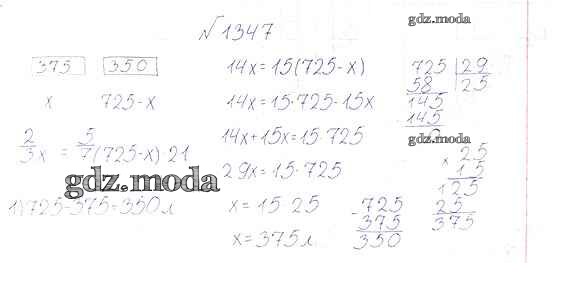 №1347
gdz.moda
375 350
x 725-x
2/3 x = 5/7 (725-x)·21
gdz.moda
1) 725-375=350 л
14x=15(725-x)
14x=15·725-15x
14x+15x=15·725
29x=15·725
x=15·25
x=375 л.
725 29
58 25
145
- 145
0
gdz.moda
x 25
15
125
25
375
- 725
375
350